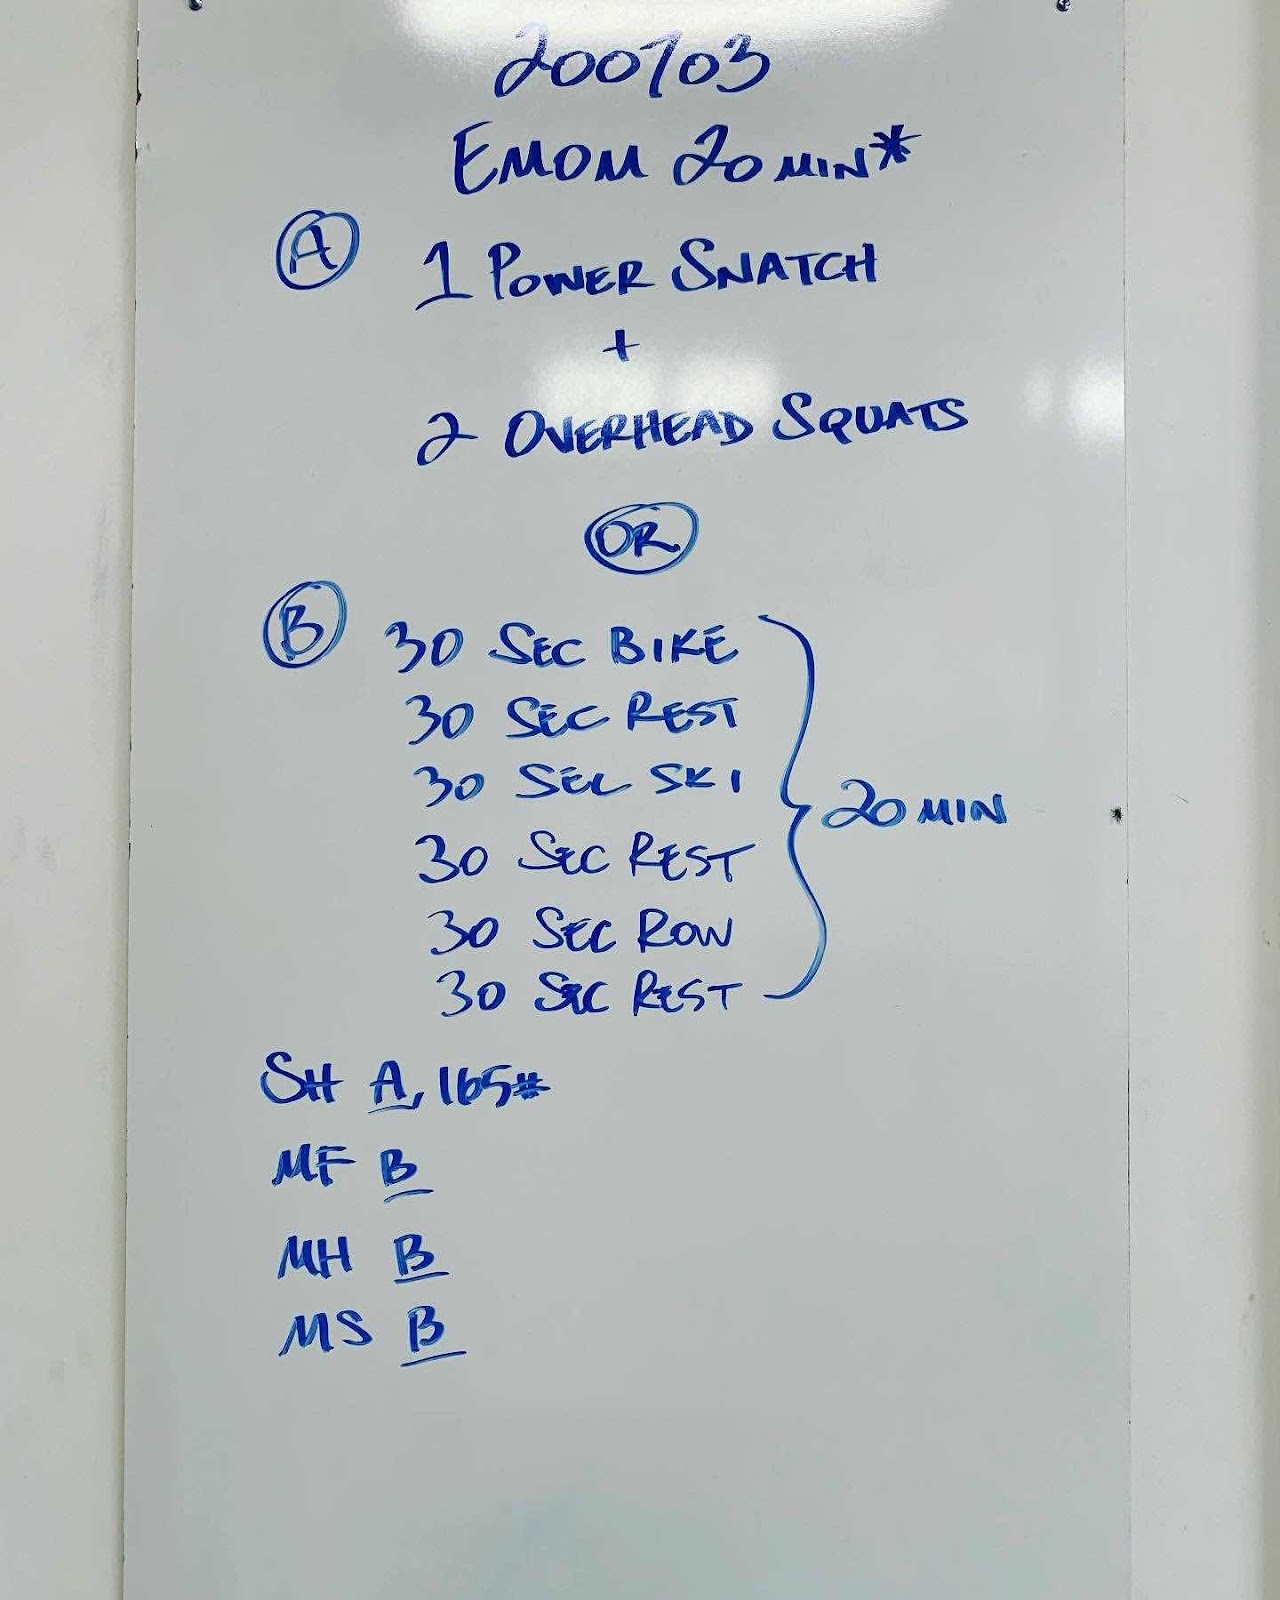 200703
EMOM 20 MIN*
A 1 POWER SNATCH
+
2 OVERHEAD SQUATS
OR
B 30 SEC BIKE
30 SEC REST
30 SEC SKI
30 SEC REST
20 MIN
30 SEC ROW
30 SEC REST
SH A, 165#
MF B
MH B
MS B